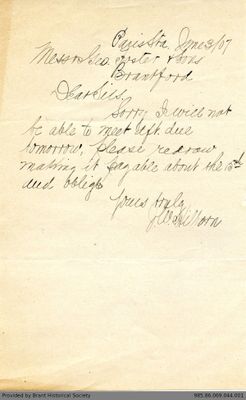 Paris Sta. June 3/07
Messrs Geo. Foster & Sons
Brantford
Dear Sirs,
Sorry I will not
be able to meet dft due
tomorrow, please redraw
making it payable about the 15th
and oblige
Yours truly
Provided by Brant Historical Society
985.86.069.044.001